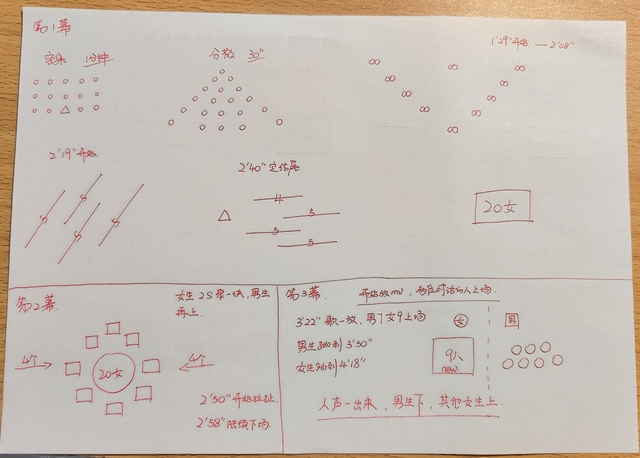 第1幕
密集 1分钟
分散 30"
1'29"开始 — 2'08"
2'19"开始
5 5 5 5
2'40"定结尾
4
5
5
5
20女
第2幕
女生25聚一块,男生
再上.
4个
4个
20女
2'50"开始拉扯
2'58"陆续下场.
第3幕
开始放mv,两段对话的人上场.
3'22"歌一放,男7女9上场
女
男
男生跳到3'50"
女生跳到4'18"
9人
new
人声一出来,男生下,其他女生上.